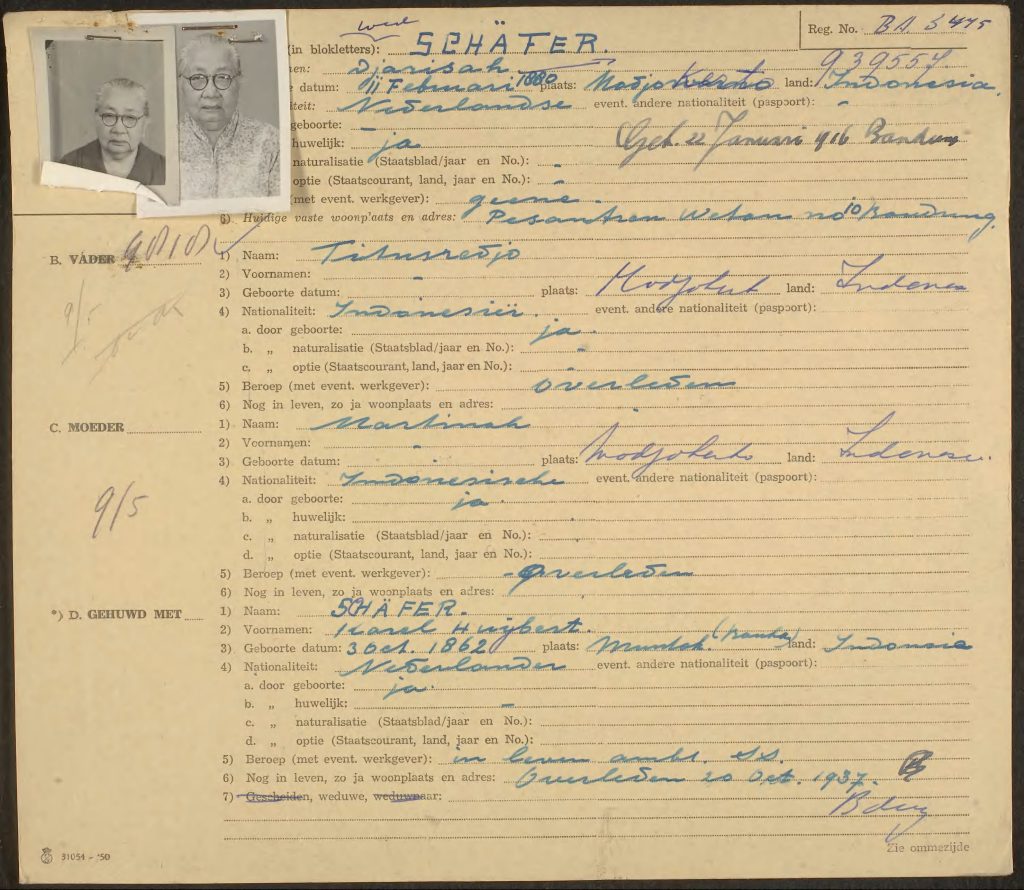 wed
Reg. No. BA 5475
(in blokletters): SCHÄFER.
939554
en: Djarisah
datum: 11 Februari 1880 plaats: Modjokerto land: Indonesia.
teit: Nederlandse event. andere nationaliteit (paspoort): -
geboorte: -
huwelijk: ja Geh. 22 Januari 1916 Bandung
naturalisatie (Staatsblad/jaar en No.): -
optie (Staatscourant, land, jaar en No.): -
met event. werkgever): geene.
6) Huidige vaste woonplaats en adres: Pesantren Wetan no 10 Bandung.
B. VADER
1) Naam: Titusredjo
2) Voornamen: -
3) Geboorte datum: plaats: Modjokert land: Indones
4) Nationaliteit: Indonesiër. event. andere nationaliteit (paspoort):
a. door geboorte: ja.
b. „ naturalisatie (Staatsblad/jaar en No.): -
c. „ optie (Staatscourant, land, jaar en No.):
5) Beroep (met event. werkgever): Overleden
6) Nog in leven, zo ja woonplaats en adres:
C. MOEDER
1) Naam: Martinah
2) Voornamen: -
3) Geboorte datum: plaats: Modjokerto land: Indones.
4) Nationaliteit: Indonesische event. andere nationaliteit (paspoort):
a. door geboorte: ja.
b. „ huwelijk:
c. „ naturalisatie (Staatsblad/jaar en No.):
d. „ optie (Staatscourant, land, jaar en No.):
9/5
5) Beroep (met event. werkgever): Overleden
6) Nog in leven, zo ja woonplaats en adres:
*) D. GEHUWD MET
1) Naam: SCHÄFER.
2) Voornamen: Karel Huijbert.
3) Geboorte datum: 3 Oct. 1862 plaats: Muntok. (Banka) land: Indonesia
4) Nationaliteit: Nederlander event. andere nationaliteit (paspoort):
a. door geboorte: ja.
b. „ huwelijk: -
c. „ naturalisatie (Staatsblad/jaar en No.):
d. „ optie (Staatscourant, land, jaar en No.):
5) Beroep (met event. werkgever): in leven ambt. SS.
6) Nog in leven, zo ja woonplaats en adres: Overleden 20 Oct. 1937.
7) Gescheiden, weduwe, weduwnaar: Bdng
Zie ommezijde
31054 - '50